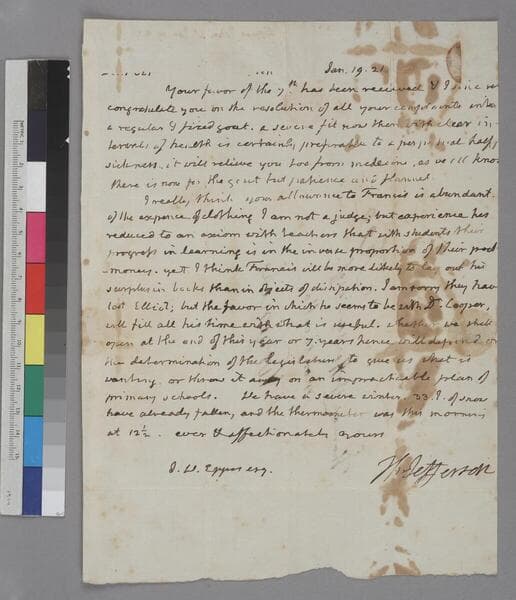 Jan. 19. 21
Your favor of the 7th has been received & I
congratulate you on the resolution of all your complaints into
a regular & fixed gout. a severe fit now & then with clear in-
tervals of health is certainly preferable to a perpetual half
sickness. it will relieve you too from medecine, as we all know
there is now for the gout but patience and flannel.
I really think your allowance to Francis is abundant.
of the expence of clothing I am not a judge; but experience has
reduced to an axiom with teachers that with students their
progress in learning is in the inverse proportion of their pocket
money. yet I think Francis will be more likely to lay out his
surplus in books than in objects of dissipation. I am sorry they have
lost Elliot; but the favor in which he seems to be with Dr. Cooper,
will fill all his time with what is useful. whether we shall
open at the end of this year or 7. years hence will depend on
the determination of the legislature to give us what is
wanting or throw it away on an impracticable plan of
primary schools. We have a severe winter. 33. I. of snow
have already fallen, and the thermometer was this morning
at 12½. ever & affectionately yours
J. W. Eppes esq.
Th: Jefferson